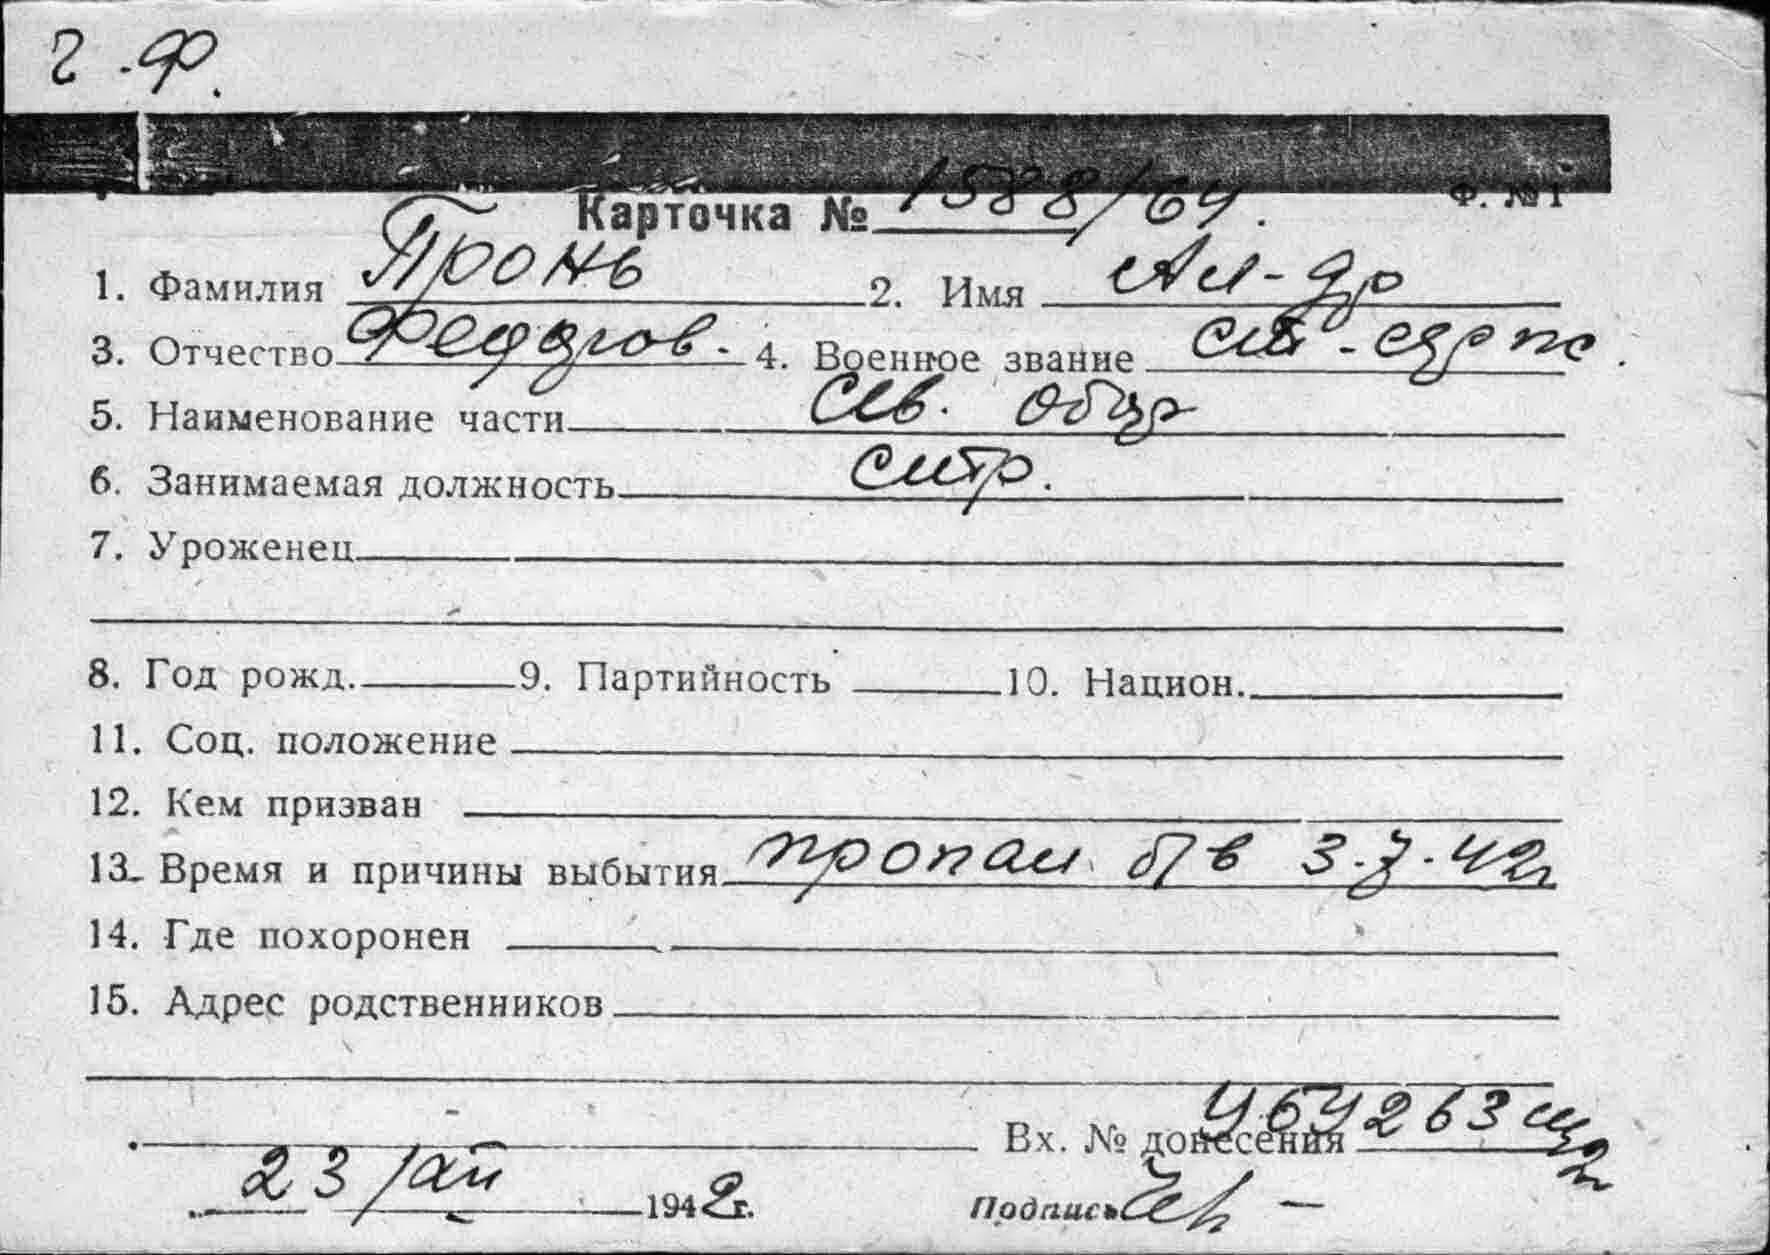 г.Ф.
Ф. №1
Карточка № 1588/64.
1. Фамилия Пронь 2. Имя Ал-др
3. Отчество Федоров. 4. Военное звание
5. Наименование части Сев.
6. Занимаемая должность стр.
7. Уроженец
8. Год рожд. 9. Партийность 10. Национ.
11. Соц. положение
12. Кем призван
13. Время и причины выбытия пропал б/в 3.7.42г
14. Где похоронен
15. Адрес родственников
Вх. № донесения
23 1942г.
Подпись